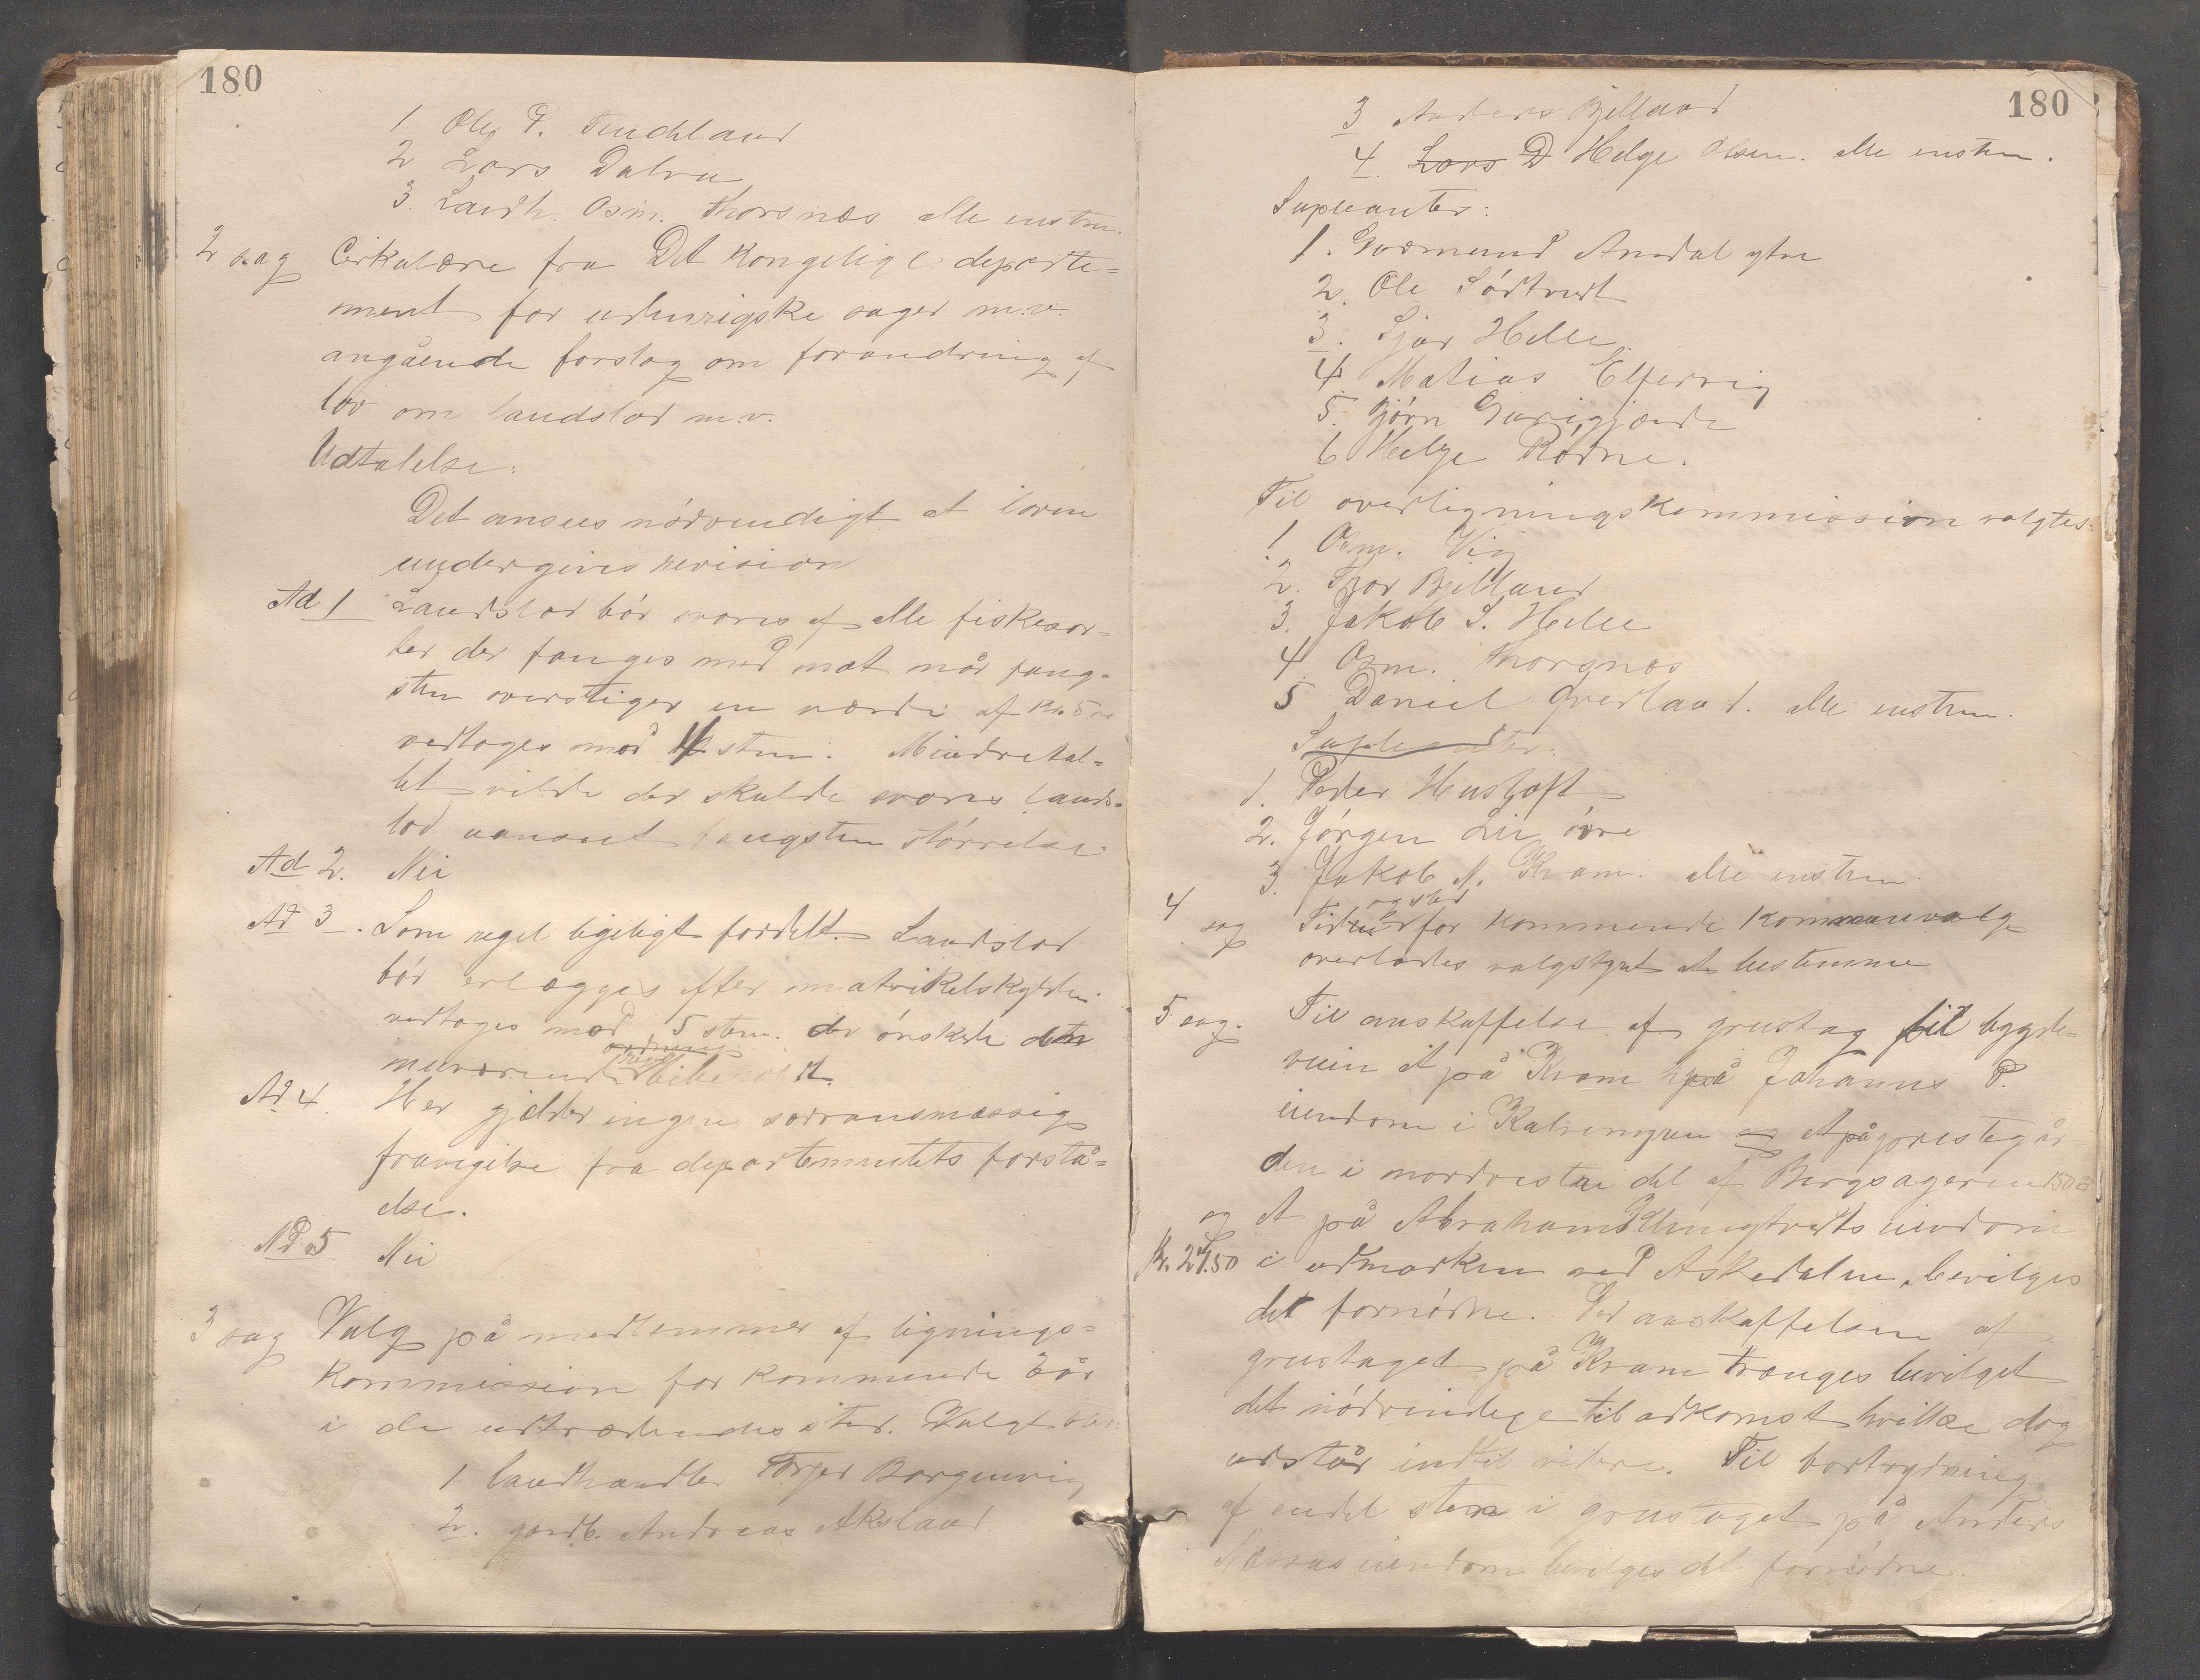 180
1 Ole T. Tuchland
2 Lars Dalva
3. Landh. Osm. Thorsnæs alle enstem.
2 sag Cirkulære fra Det Kongelige departe=
ment for udenrigske sager m.v.
angående forslag om forandring af
lov om landslod m.v.
Udtalelse:
Det ansees nödvendigt at loven
undergives revision
Ad 1 Landslod bör svares af alle fiskesor=
ter der fanges med not når fang=
sten overstiger en værdi af kr. 500
vedtoges mod 4 stem. Mindretal=
let vilde der skulde svares lands=
lod uanset fangsten störrelse.
Ad 2. Nei
Ad 3. Som regel ligeligt fordelt. Landslod
bör erlægges efter matrikelskylden
vedtoges mod 5 stem. der önskede den
nuværende ordning bibeholdt.
Ad 4. Her gjælder ingen sedvansmæssig
fravigelse fra departementets forstå=
else.
Ad 5 Nei
3 sag Valg på medlemmer af lignings=
kommission for kommende 2 år
i de udtrædendes sted. Valgt blev:
1 landhandler Torger Borgenvig
2. gardb. Andreas Aksland
180
3 Anders Bjelland
4. Lars D Helge Olsen. alle enstem.
Supleanter:
1. Gudmund Amdal ytre
2. Ole Södtvedt
3. Sjur Helle
4. Matias Elfervig
5. Björn Gurigjærde
6 Helge Rödne.
Til overligningskommission valgtes:
1 Osm. Vig
2. Thor Bjelland
3. Jakob S. Helle
4. Osm. Thorsnæs
5 Daniel Qvedland. alle enstem.
Supleanter:
1. Peder Hustoft
2. Jörgen Lie övre
3. Jakob N. Kvam. alle enstem.
og sted
4 sag Tiden for kommende kommunevalg
overlades valgstyret at bestemme
5 sag. Til anskaffelse af grustag til bygde=
veien et på Kvam på Johannes P.
eiendom i Kalvemyren og et på prestegår
den i nordvestre del af Bergsageren 150
og et på Abraham Klungtvedts eiendom
Kr. 27.50 i udmarken ved Askedalen, bevilges
det fornödne. Ved anskaffelsen af
grustaget på Kvam trænges bevilget
det nödvendige til adkomst hvilke dog
udstår indtil videre. Til bortrydning
af endel sten i grustaget på Anders
Næssas eiendom bevilges det fornödne.